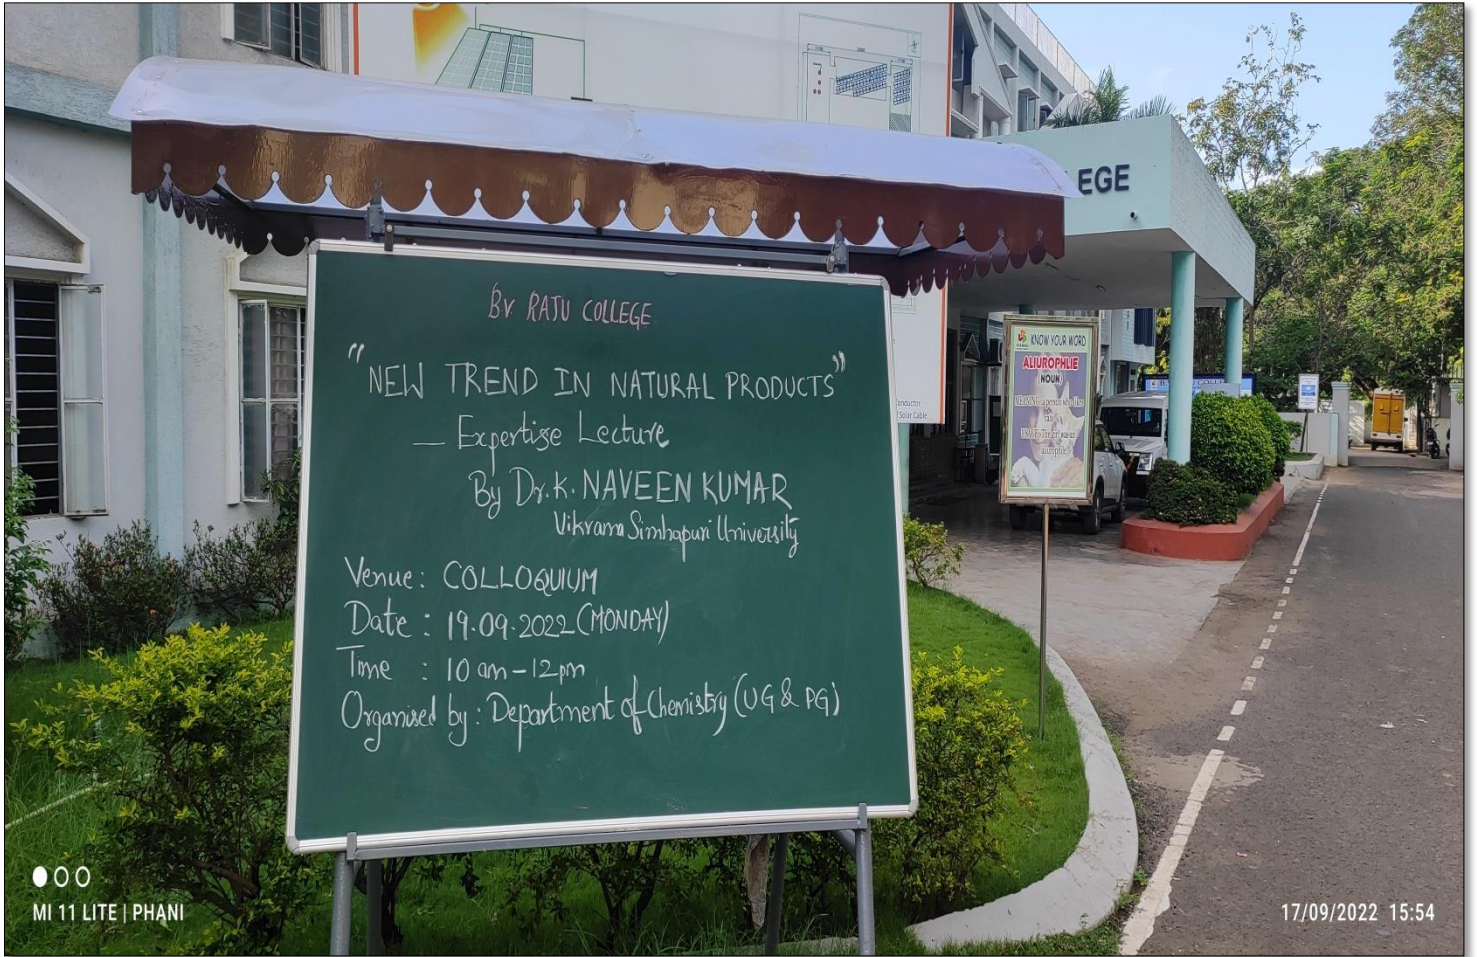 EGE
BV. RAJU COLLEGE
"NEW TREND IN NATURAL PRODUCTS"
— Expertize Lecture
By Dr. K. NAVEEN KUMAR
Vikrama Simhapuri University
Venue : COLLOQUIUM
Date : 19.09.2022 (MONDAY)
Time : 10 am – 12 pm
Organised by : Department of Chemistry (UG & PG)
KNOW YOUR WORD
ALIUROPHLIE
NOUN
Solar Cable
MI 11 LITE | PHANI
17/09/2022 15:54